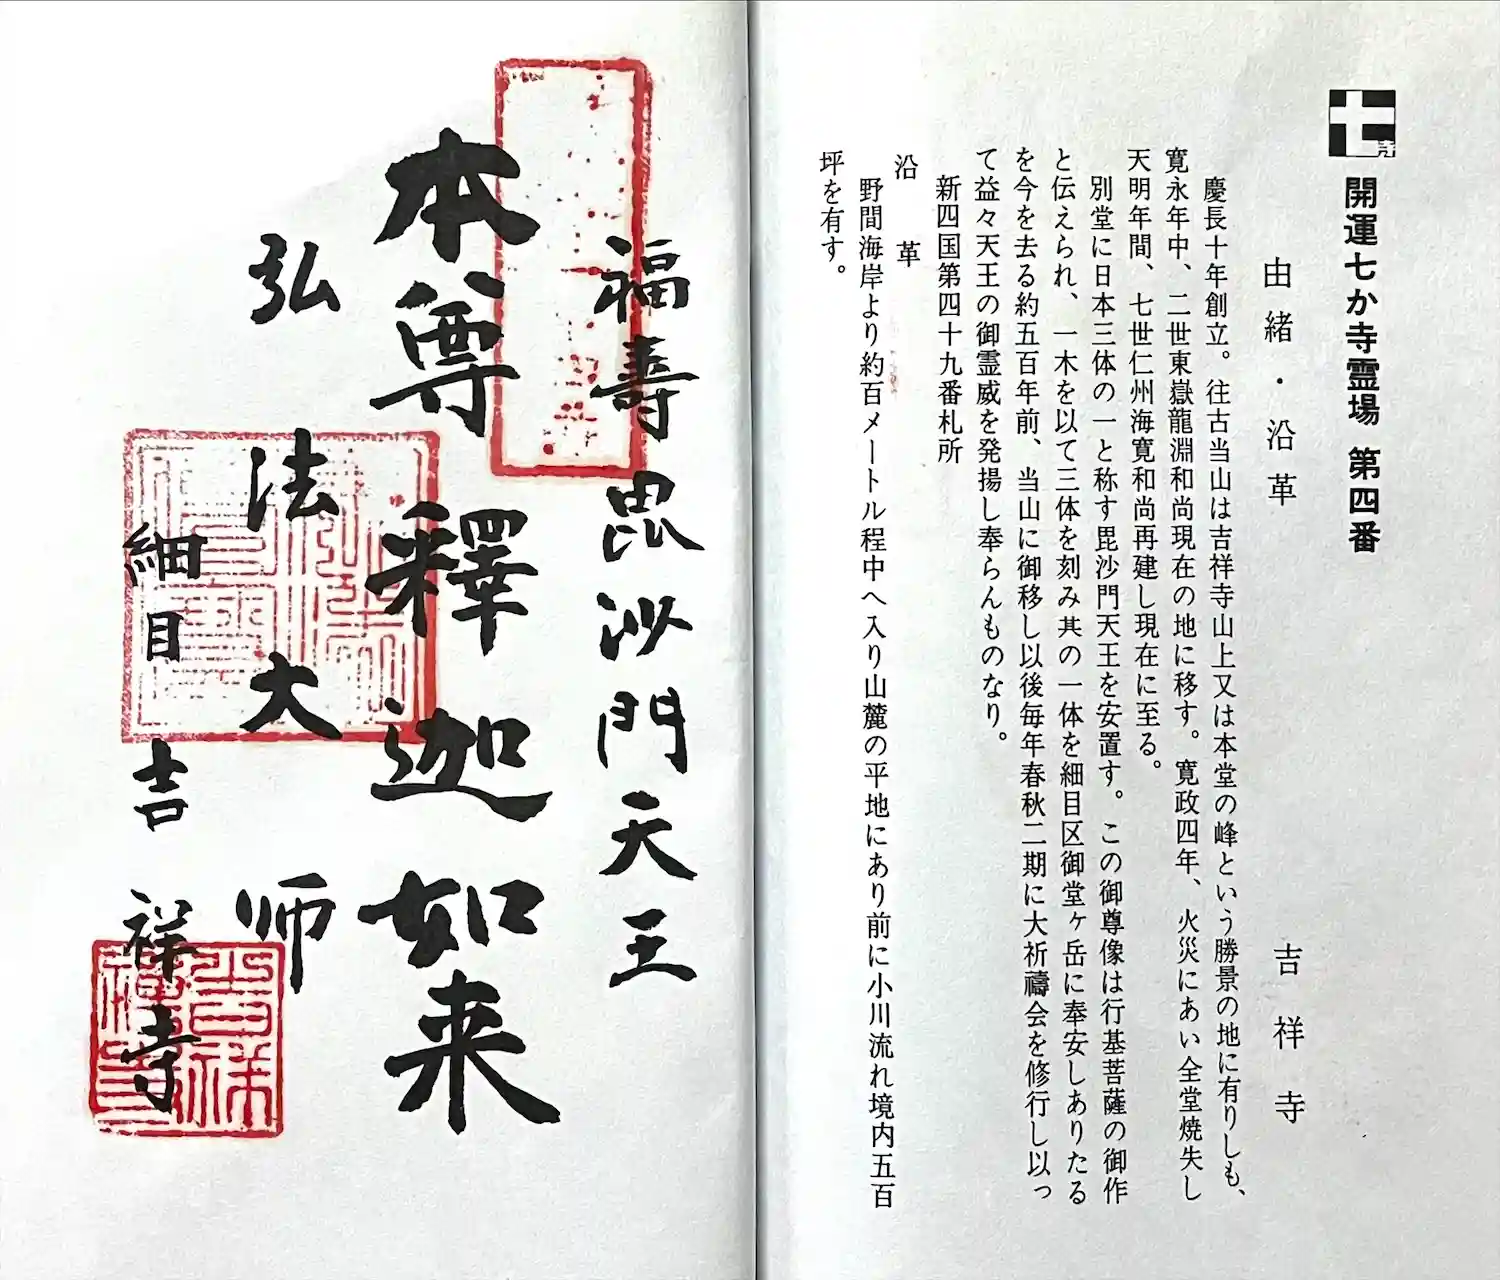 開運七か寺霊場 第四番
由緒・沿革 吉祥寺
慶長十年創立。往古当山は吉祥寺山上又は本堂の峰という勝景の地に有りしも、
寛永年中、二世東嶽龍淵和尚現在の地に移す。寛政四年、火災にあい全堂焼失し
天明年間、七世仁州海寛和尚再建し現在に至る。
別堂に日本三体の一と称す毘沙門天王を安置す。この御尊像は行基菩薩の御作
と伝えられ、一木を以て三体を刻み其の一体を細目区御堂ヶ岳に奉安しありたる
を今を去る約五百年前、当山に御移し以後毎年春秋二期に大祈禱会を修行し以っ
て益々天王の御霊威を発揚し奉らんものなり。
新四国第四十九番札所
沿革
野間海岸より約百メートル程中へ入り山麓の平地にあり前に小川流れ境内五百
坪を有す。
福壽毘沙門天王
本尊釋迦如来
弘法大師
細目吉祥寺